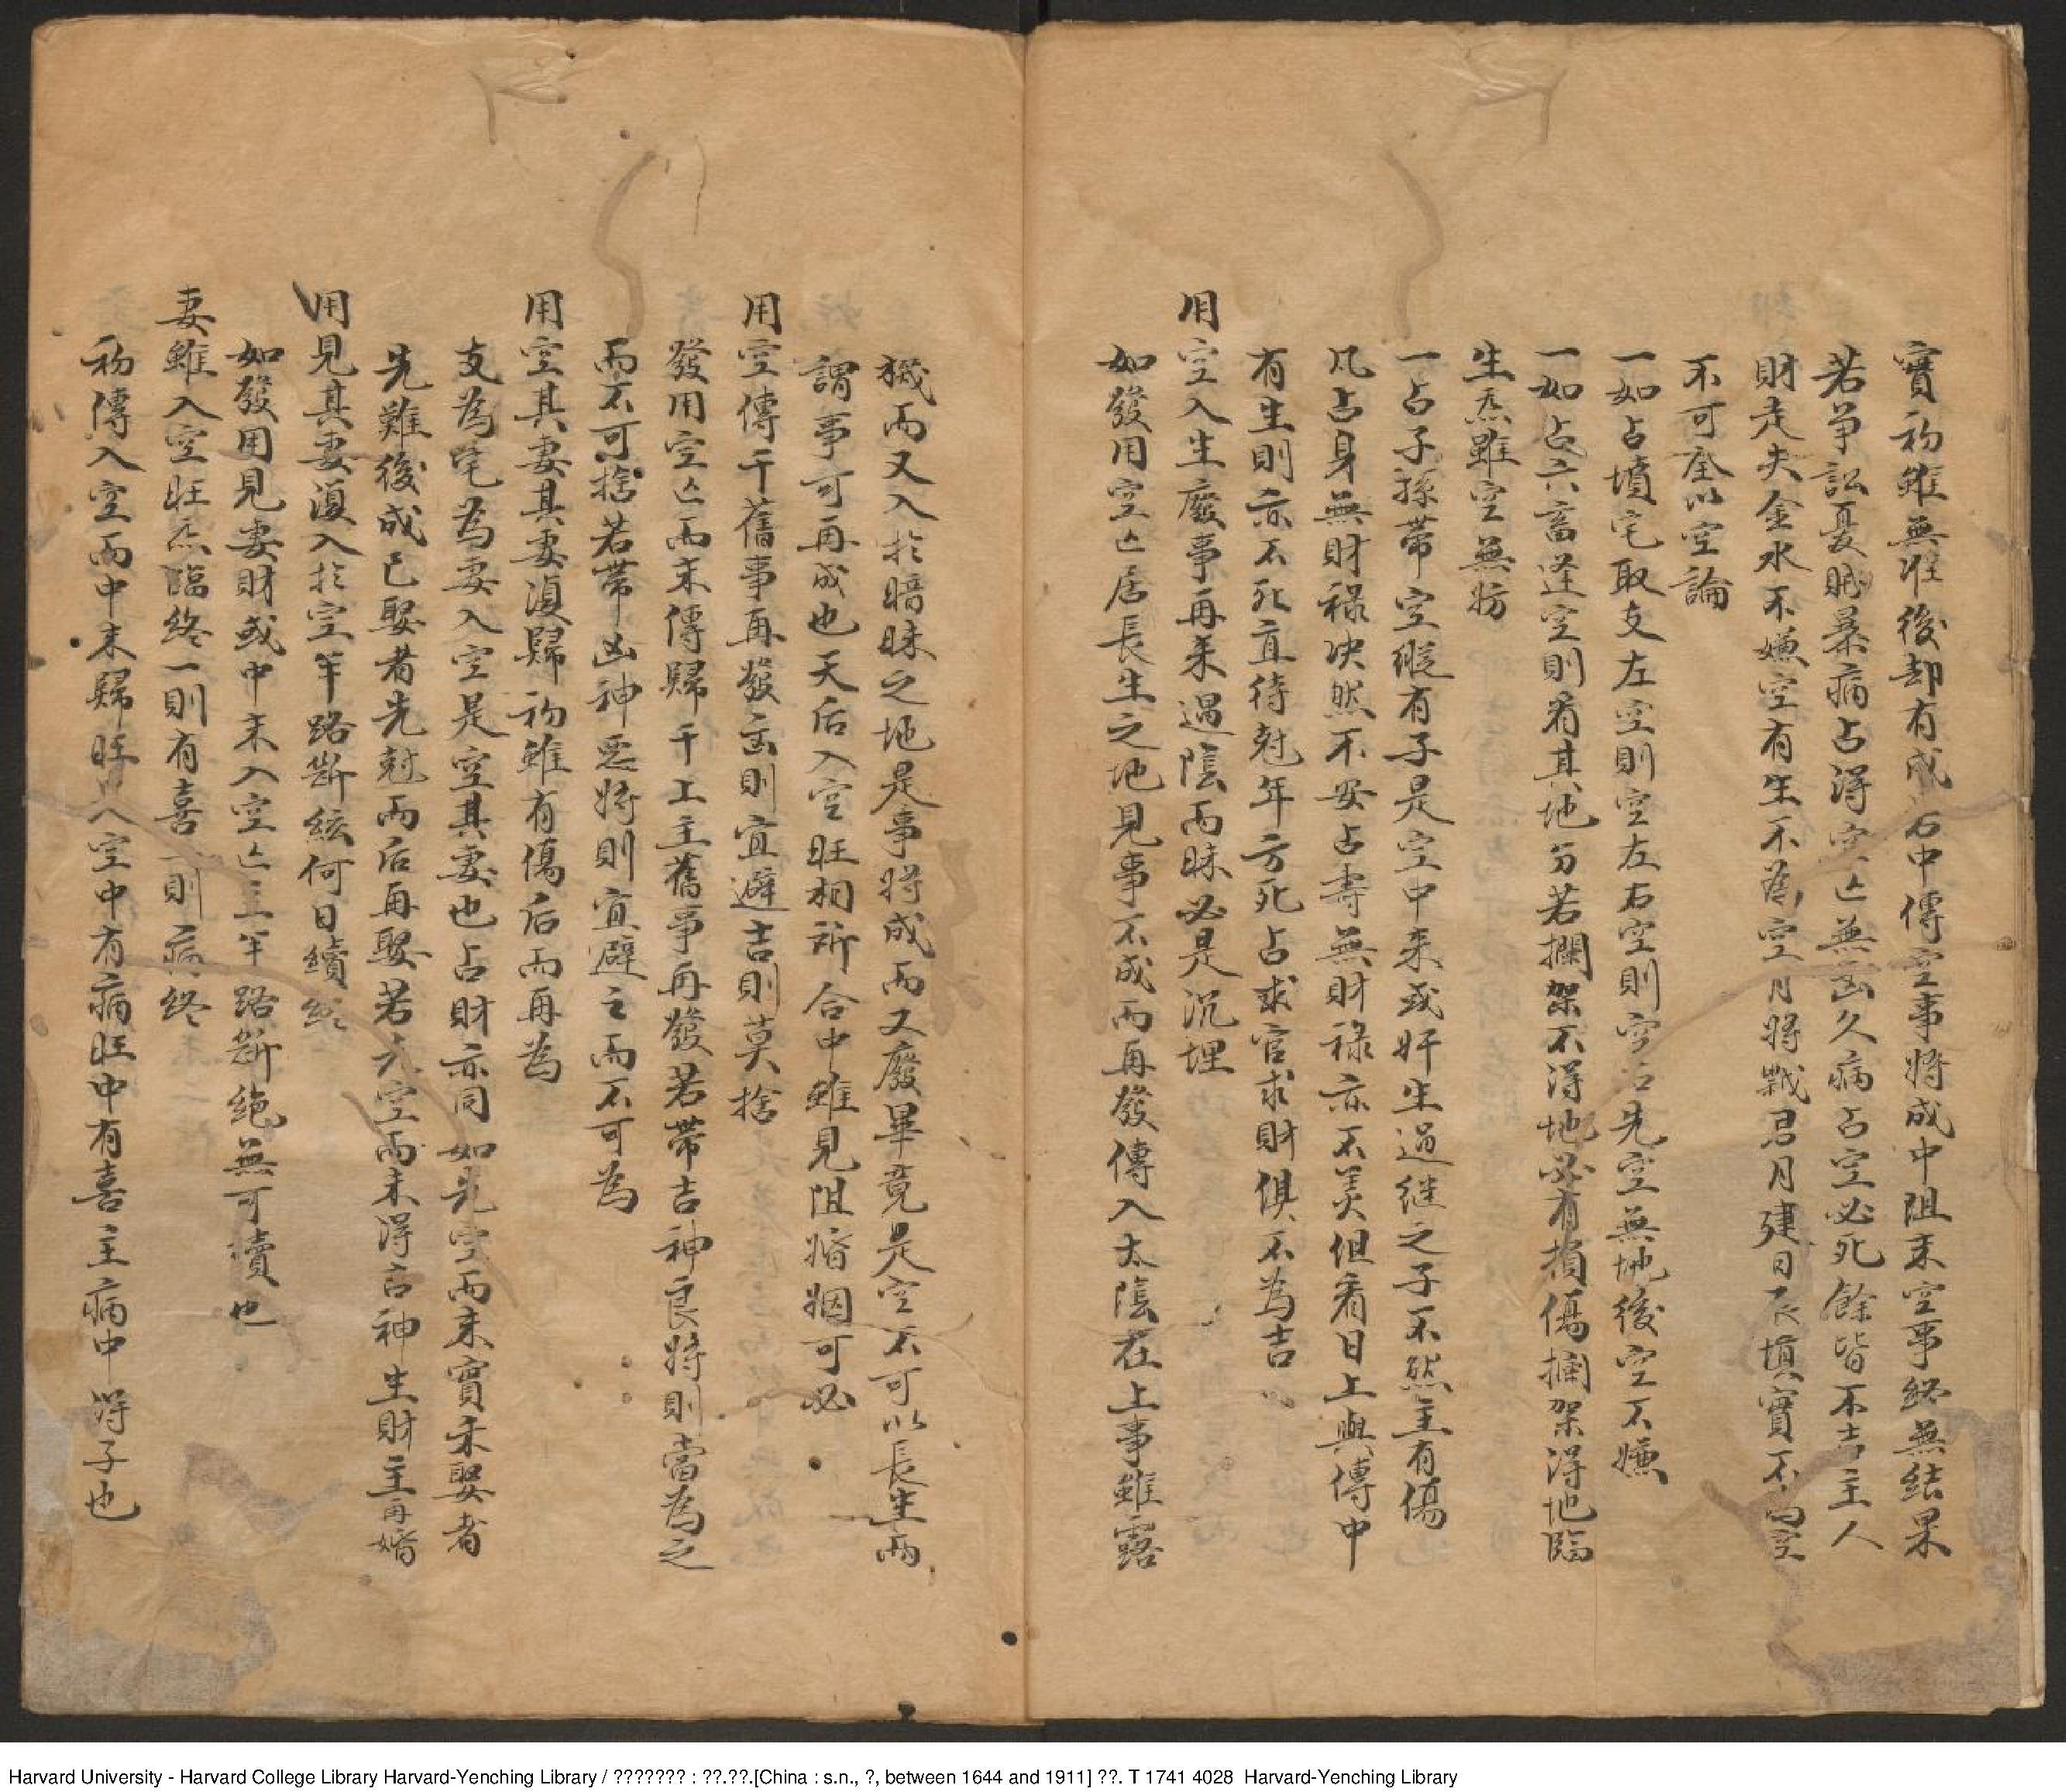 實初雖無准後却有成若中傳空事將成中阻末空事終無結果
若爭訟憂賊暴病占得空亡無凶久病占空必死餘皆不吉主人
財走失金水不嫌空有生不為空月將戰君月建日辰填實不為空
不可全以空論
一如占墳宅取支左空則空左右空則空右先空無地後空不嫌
一如占六畜逢空則看其地分若攔架不得地必有損傷攔架得地臨
生炁雖空無妨
一占子孫帶空縱有子是空中来或奸生過継之子不然主有傷
凡占身無財祿决然不安占壽無財祿亦不美但看日上與傳中
有生則亦不死直待尅年方死占求官求財俱不為吉
用空入生廢事再来遇陰而昧必是沉埋
如發用空亡居長生之地見事不成而再發傳入太陰在上事雖露
機而又入於暗昧之地是事將成而又廢畢竟是空不可以長生而
謂事可再成也天后入空旺相祈合中雖見阻婚姻可必
用空傳干舊事再發凶則宜避吉則莫捨
發用空亡而末傳歸干上主舊事再發若帶吉神良將則當為之
而不可捨若帶凶神惡將則宜避之而不可為
用空其妻其妻復歸初雖有傷后而再為
支為宅為妻入空是空其妻也占財亦同如先空而末實未娶者
先難後成已娶者先尅而后再娶若先空而末得吉神生財主再婚
用見其妻復入於空半路斷絃何日續終
如發用見妻財或中末入空亡主半路斷絶無可續也
妻雖入空旺炁臨終一則有喜一則病終
初傳入空而中末歸旺 入空中有病旺中有喜主病中得子也